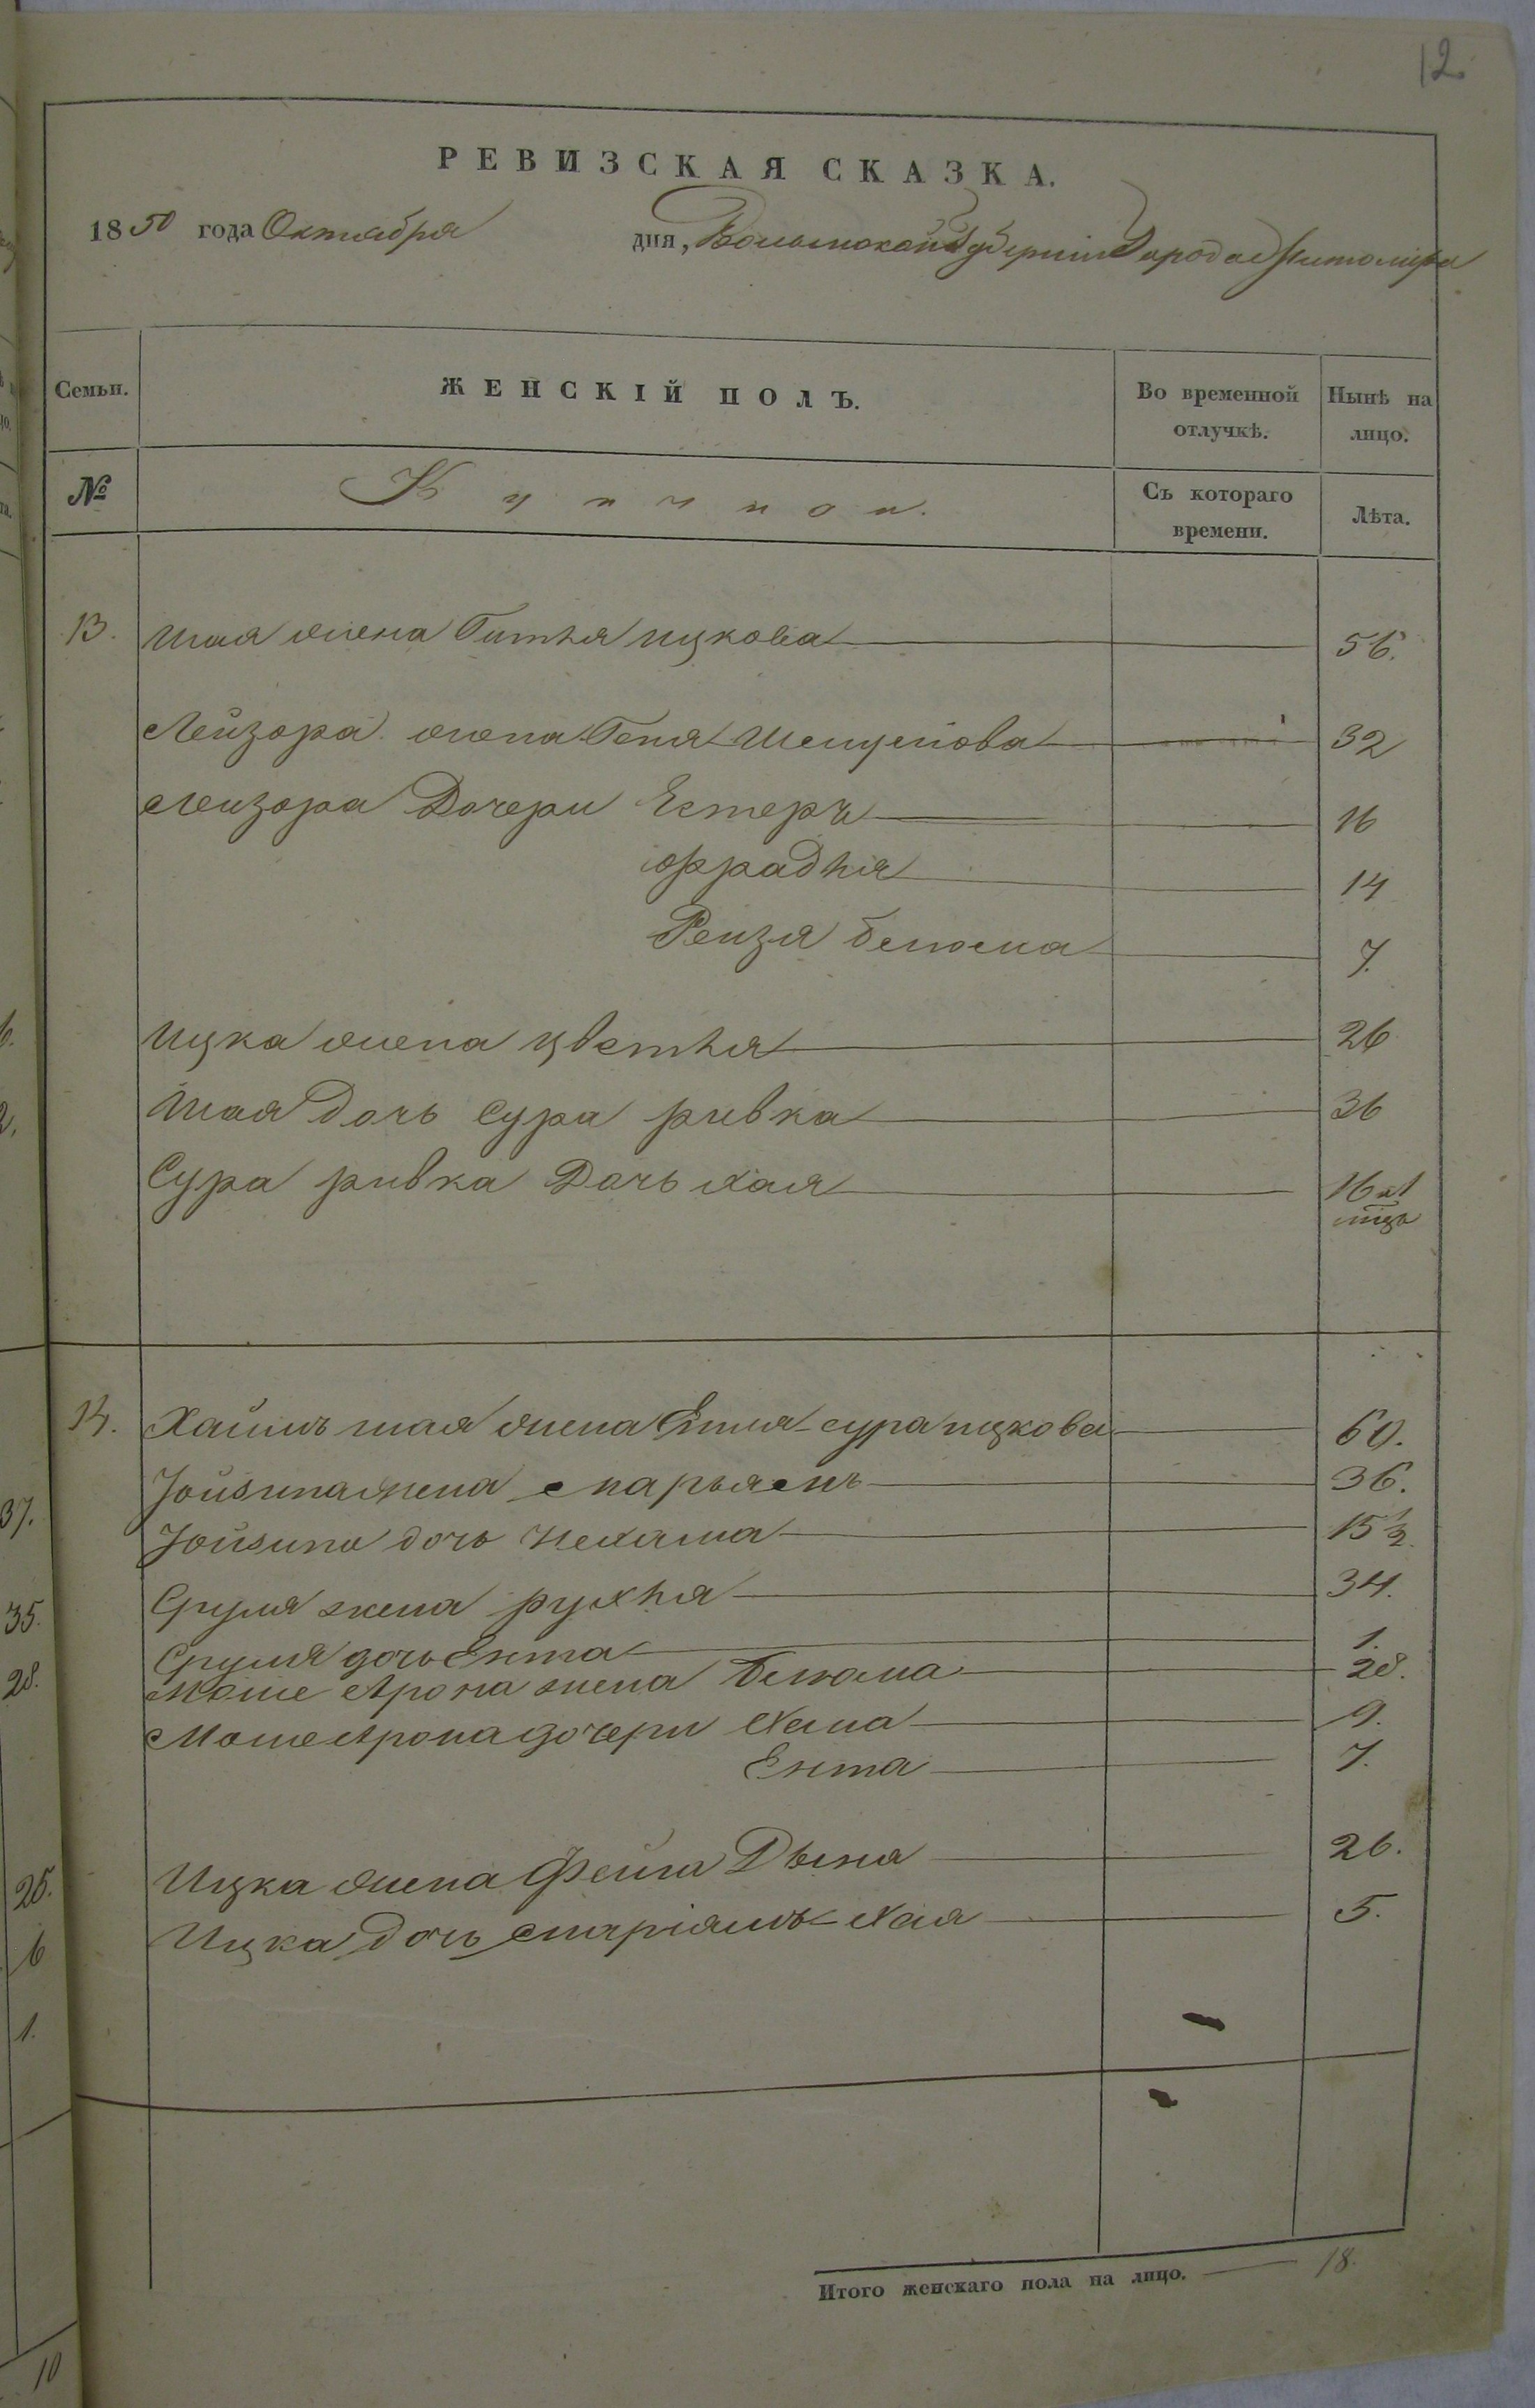 12
РЕВИЗСКАЯ СКАЗКА.
1850 года Октября дня, Волынской Губернии Города Житомира
Семьи. ЖЕНСКІЙ ПОЛЪ. Во временной отлучкѣ. Нынѣ на лицо.
№ Съ котораго времени. Лѣта.
13. Шая жена Ситня ицкова 56.
Лейзора жена Геня 32
Лейзора Дочери Естеръ 16
Фрадня 14
Рейзя блюма 7.
Ицка жена цветня 26
Шая Дочь Сура ривка 36
Сура ривка Дочь хая 16
14. Хаимъ шая жена сура ицкова 60.
жена Марьямъ 36.
дочь Нехама 15 1/2
Сруля жена рухня 34.
Сруля дочь Ента 1.
Моше Арона жена Блюма 28.
Моше Арона дочери Хана 9.
Ента 7.
Ицка жена Фейга Двыня 26.
Ицка дочь Маріямъ Хая 5.
Итого женскаго пола на лицо. 18.
37.
35.
28.
25.
6
1.
10